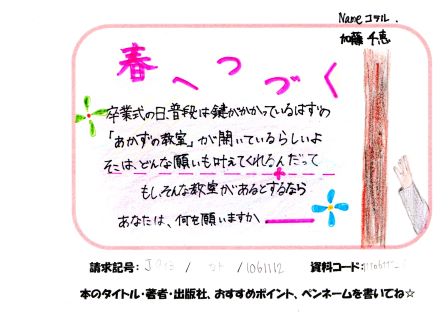 Name コラル.
加藤 千恵
春へつづく
卒業式の日、普段は鍵がかかっているはずの
「あかずの教室」が開いているらしいよ
そこは、どんな願いも叶えてくれるんだって
もし、そんな教室があるとするなら
あなたは、何を願いますか
請求記号: J913 / カト / 1061112
資料コード:
本のタイトル・著者・出版社、おすすめポイント、ペンネームを書いてね☆